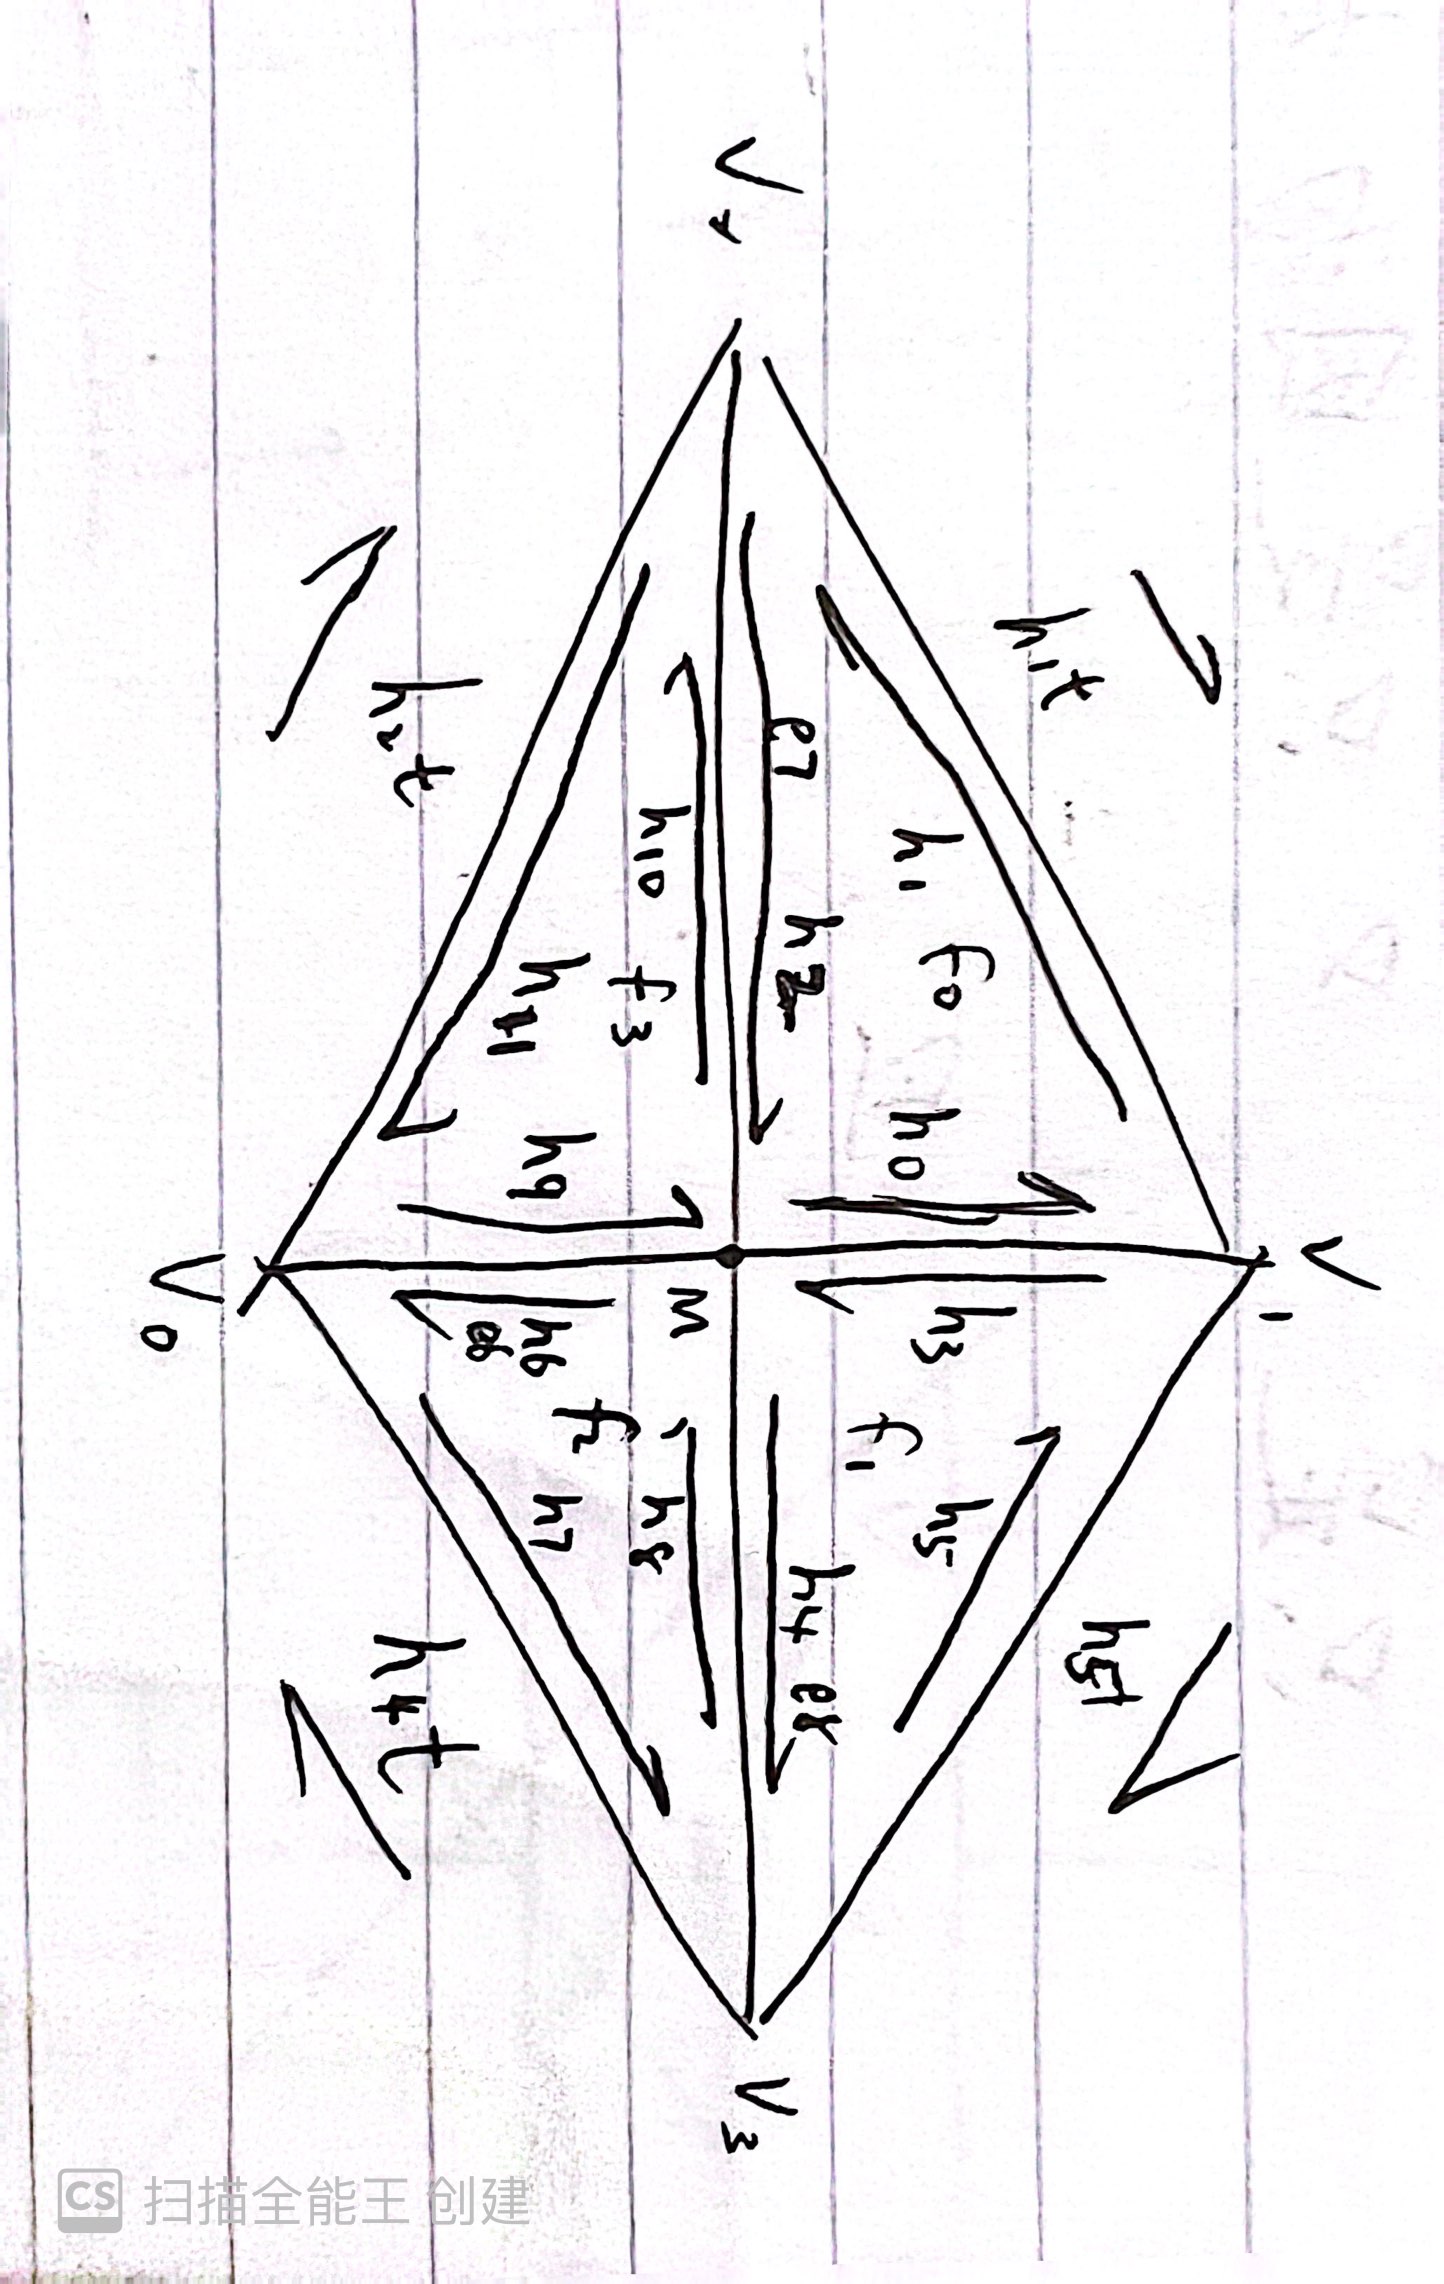 V1
h1t
h5t
h1
f0
h0
h3
h5
f1
e7
h2
h4
e8
V3
M
h10
f3
h8
f2
h11
h9
h6
e6
h7
h2t
h4t
V0
CS 扫描全能王 创建